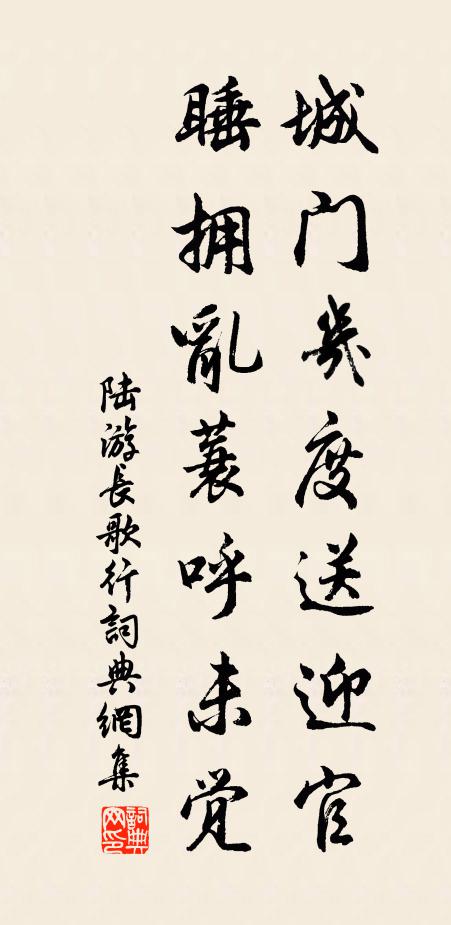 城门幾度送迎官
睡拥亂蓑呼未觉
陆游长歌行詞典網集
詞典
网印